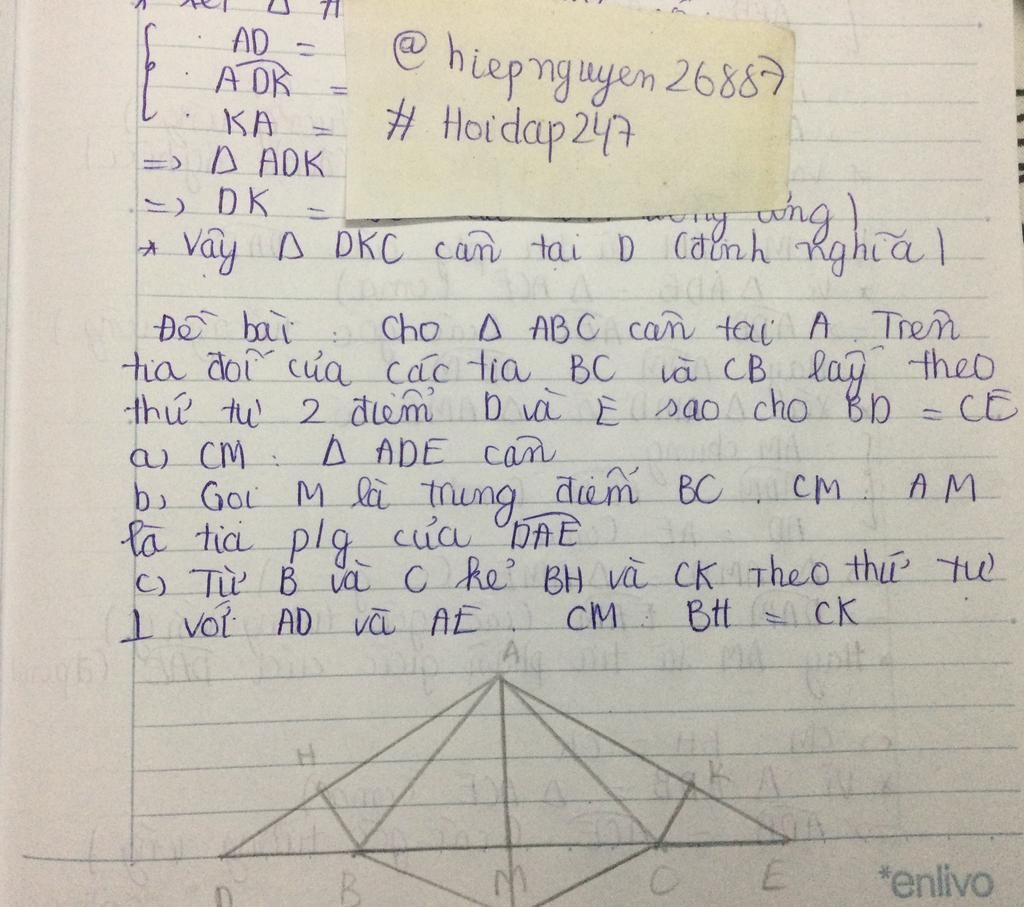 AD =
ADK =
KA =
=> Δ ADK
=> DK = ứng)
* Vậy Δ DKC cân tại D (định nghĩa)
@hiepnguyen26887
# Hoidap247
Đề bài : Cho Δ ABC cân tại A. Trên
tia đối của các tia BC và CB lấy theo
thứ tự 2 điểm D và E sao cho BD = CE
a) CM : Δ ADE cân
b, Gọi M là trung điểm BC. CM : AM
là tia p/g của DAE
c) Từ B và C kẻ BH và CK theo thứ tự
⊥ với AD và AE. CM : BH = CK
A
H
K
D B M C E
*enlivo